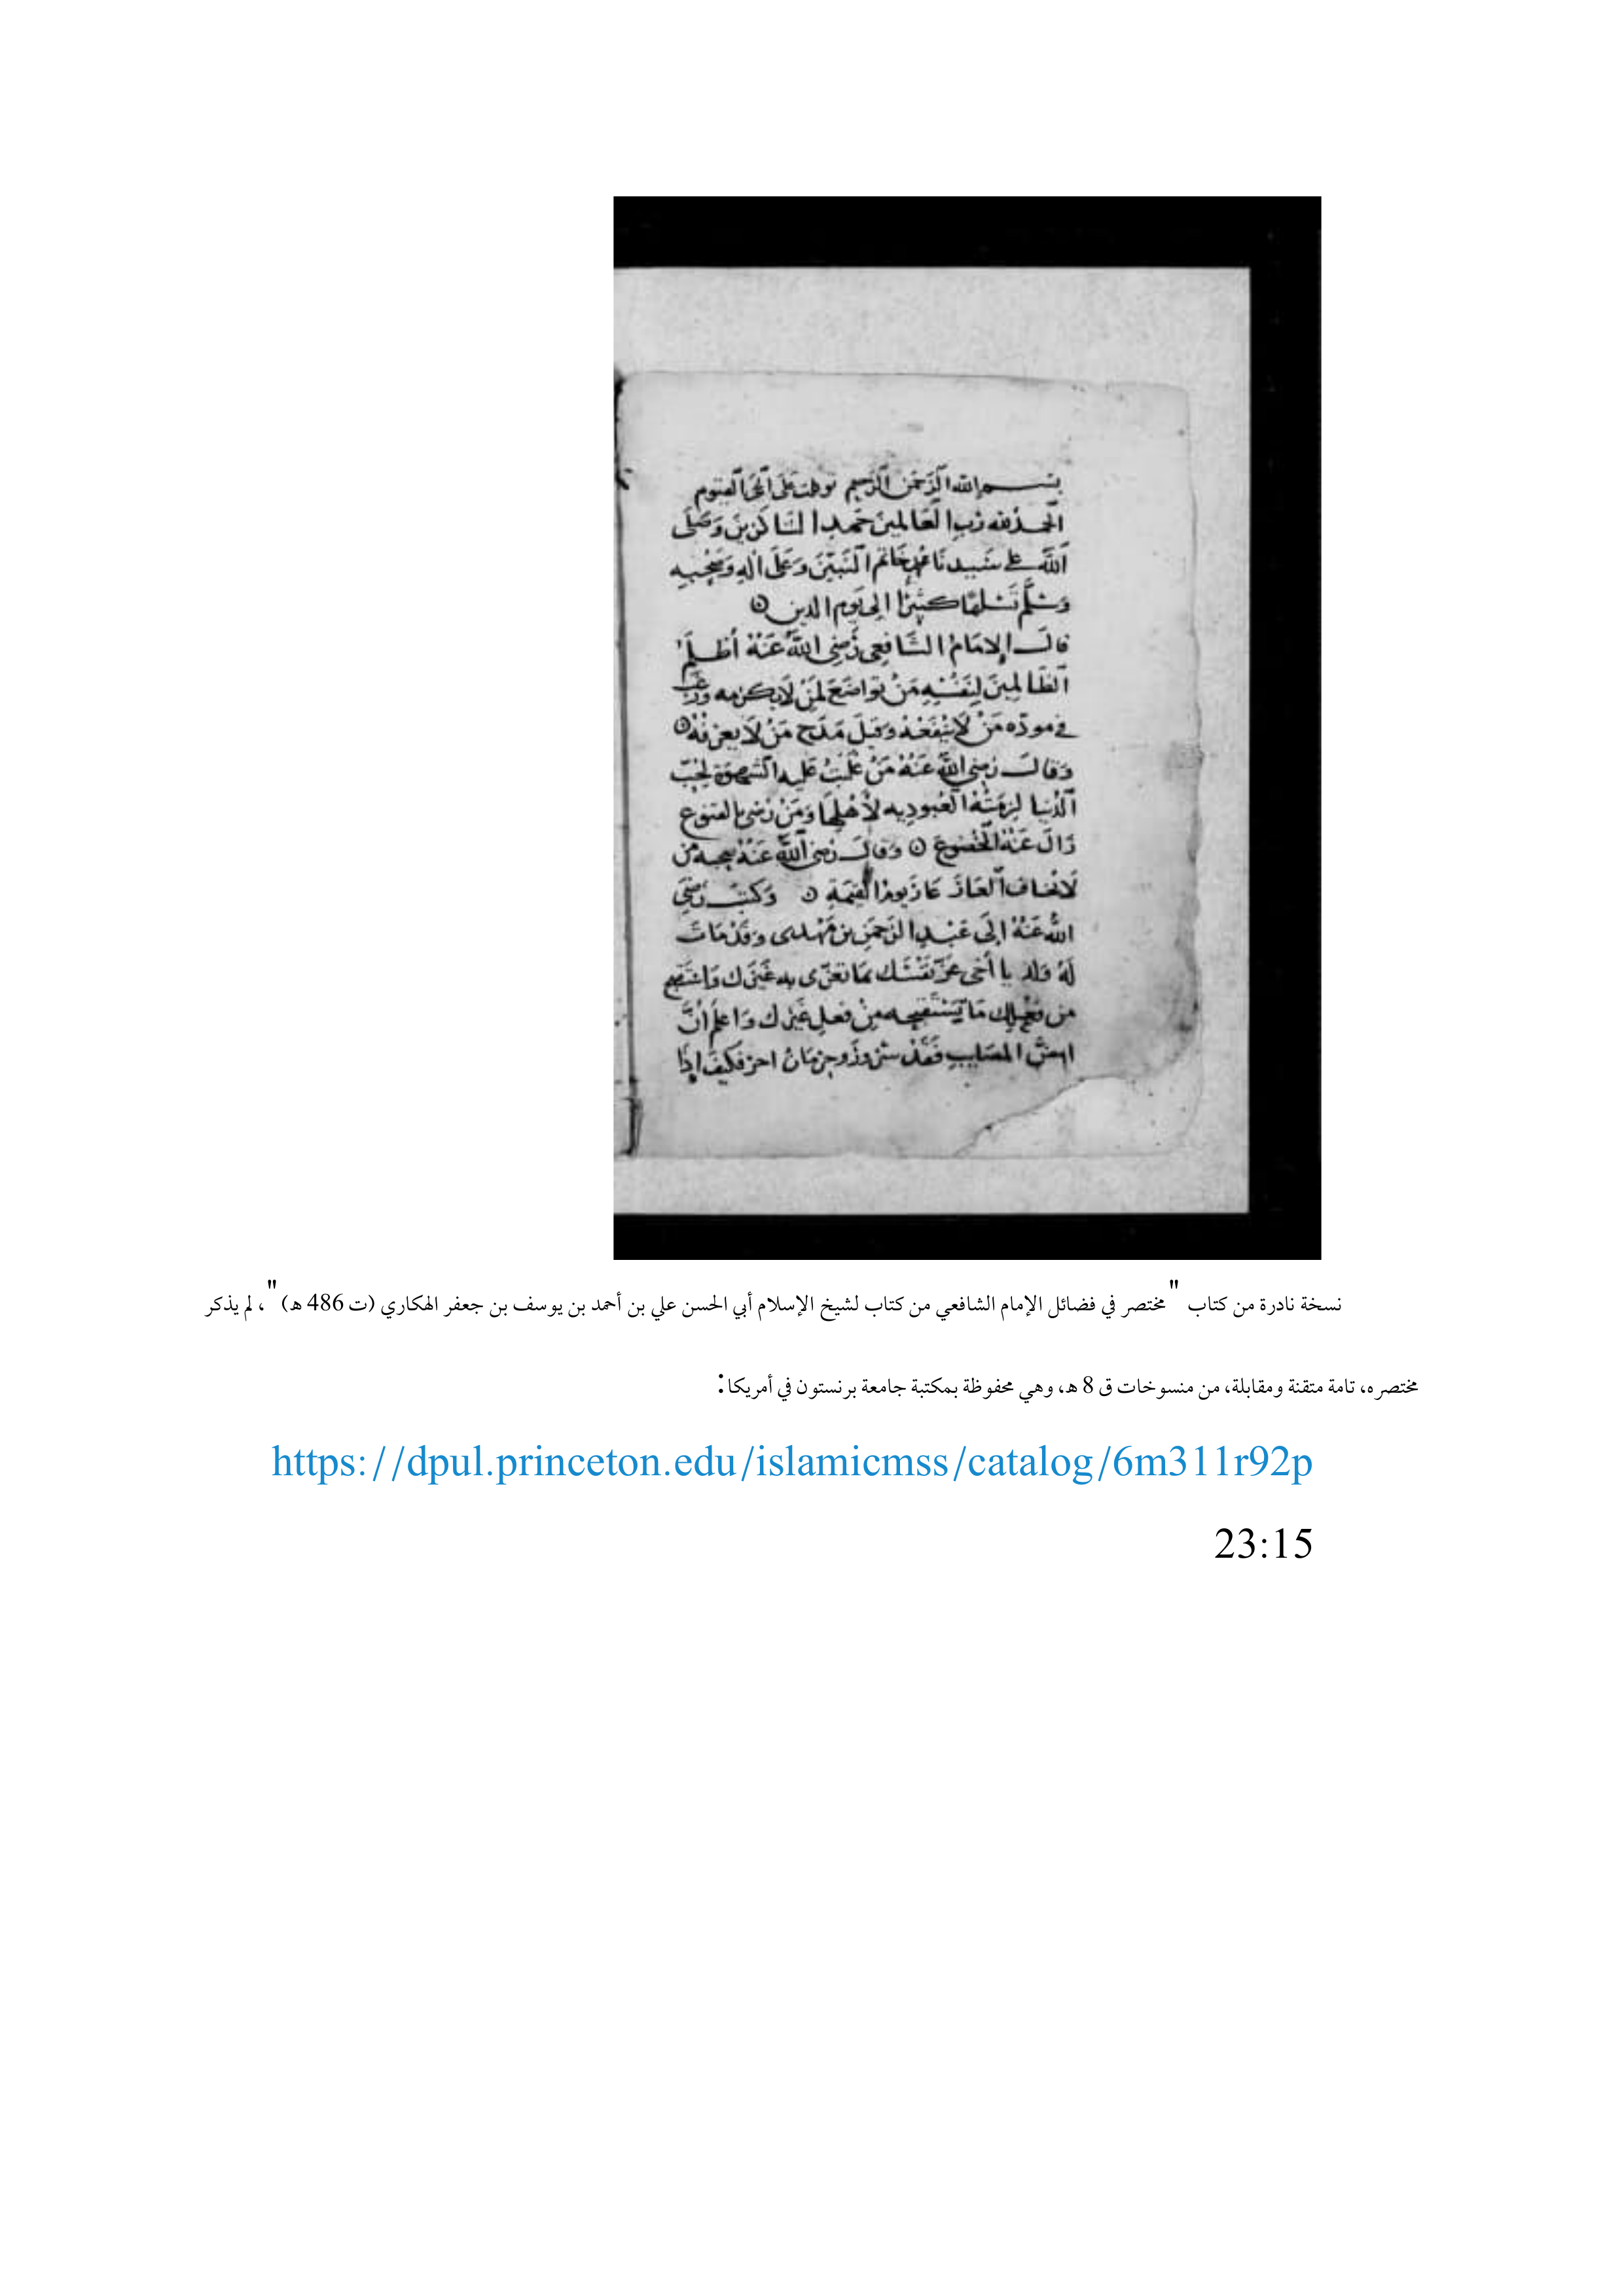 بسم الله الرحمن الرحيم توكلت على الحي القيوم
الحمد لله رب العالمين حمد الشاكرين وصلى
الله على سيدنا محمد خاتم النبيين وعلى اله وصحبه
وسلم تسليما كثيرا الى يوم الدين
قال الإمام الشافعي رضي الله عنه أظلم
الظالمين لنفسه من تواضع لمن لا يكرمه ورغب
في مودة من لا ينفعه وقبل مدح من لا يعرفه
وقال رضي الله عنه من غلبت عليه الشهوة لحب
الدنيا لزمته العبودية لأهلها ومن رضي بالقنوع
زال عنه الخضوع وقال رضي الله عنه من
لا يخاف العار عار يوم القيمة وكتب رضي
الله عنه إلى عبد الرحمن بن مهدي وقد مات
له ولد يا أخي عز نفسك بما تعزي به غيرك واستقبح
من فعلك ما يستقبحه من فعل غيرك واعلم أن
امض المصايب فقد سرور وحرمان اجر فكيف إذا
نسخة نادرة من كتاب "مختصر في فضائل الإمام الشافعي من كتاب لشيخ الإسلام أبي الحسن علي بن أحمد بن يوسف بن جعفر الهكاري (ت 486 هـ)"، لم يذكر
مختصره، تامة متقنة ومقابلة، من منسوخات ق 8 هـ، وهي محفوظة بمكتبة جامعة برنستون في أمريكا:
https://dpul.princeton.edu/islamicmss/catalog/6m311r92p
23:15